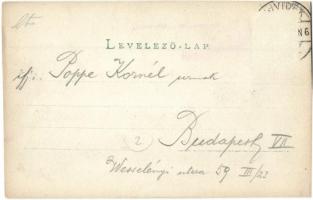 LEVELEZŐ-LAP
ifj. Poppe Kornél urnak
2
Budapest VII
Wesselényi utca 59 III/23